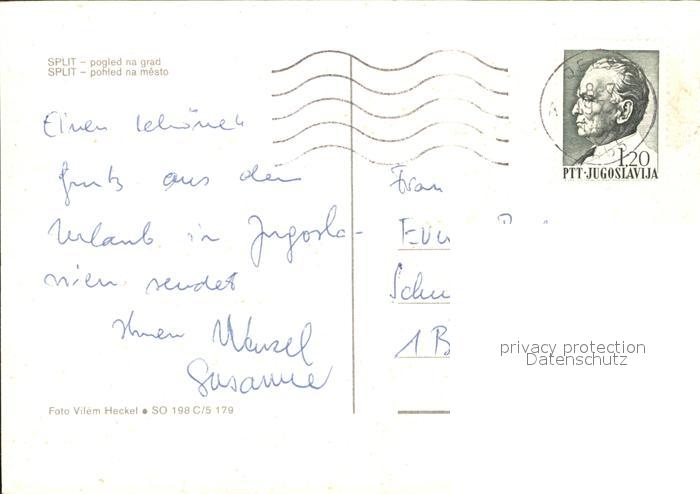 SPLIT – pogled na grad
SPLIT – pohled na město
Einen schönen
Gruß aus dem
Urlaub in Jugosla-
wien sendet
Ihnen
Susanne
Foto Vilém Heckel ● SO 198 C/5 179
1.20
PTT·JUGOSLAVIJA
Frau
1 B
privacy protection
Datenschutz